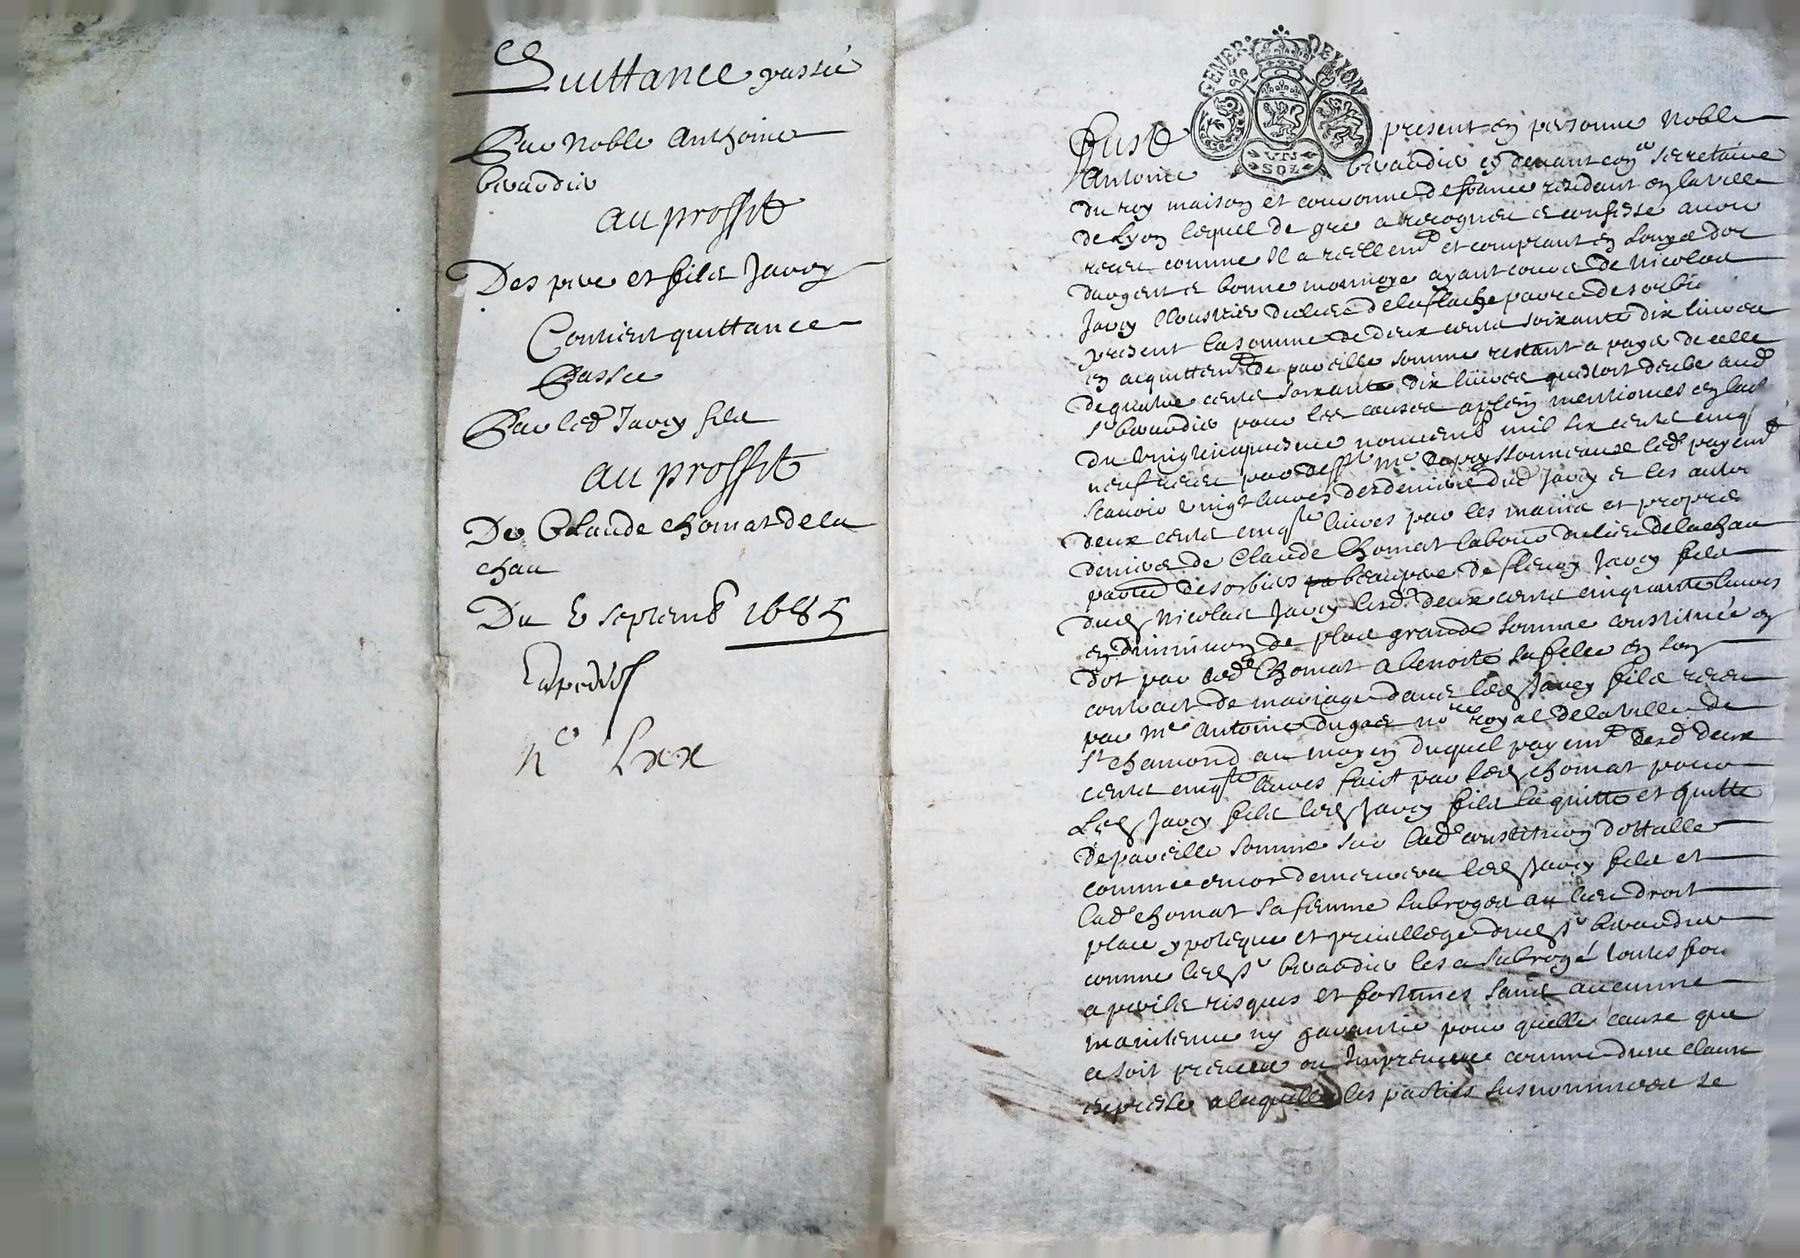 Quittance passée
Par Noble Anthoine
beraudier
au proffit
Des pere et fils Javoy
Contient quittance
Passée
Par led Javoy fils
au proffit
De Claude Chomat de la
chau
Du 5 septemb 1685
Expedié
n° Lxx
GENER. DE LYON
VN
SOL
Fust present en personne Noble
Antoine beraudier cy devant con.er secretaire
du roy maison et couronne de france residant en la ville
de Lyon lequel de gré a recogneu et confessé avoir
receu comme Il a reellem.t et comptant en Louys dor
dargent et bonne monnoye ayant cours de Nicolas
Javoy du lieu de la paroisse de sorbie
present la somme de deux cents soixante dix livres
en acquittem.t de pareille somme restant a payer de celle
de quatre cents soixante dix livres questoit deube aud.
S.r beraudier pour les causes mentionees en
du vingtcinquiesme novemb mil six cents cinq.te
neuf receu par M.e led payem.t
scavoir vingt livres des deniers dud Javoy et les autres
deux cents cinq.te livres par les mains et propres
deniers de Claude Chomat du lieu de la chau
paroisse de sorbiers beaupere de fleury Javoy fils
dud Nicolas Javoy lesd. deux cents cinquante livres
en diminuon de plus grande somme constituée en
dot par led Chomat a benoite sa fille en son
contract de mariage avec led Javoy fils receu
par M.e Antoine dugas no.re royal de la ville de
St chamond au moyen duquel payem.t desd deux
cents cinq.te livres faict par led chomat pour
Led Javoy fils led Javoy fils la quitte et quitte
de pareille somme sur lad constitution dottalle
comme encor demeurera led Javoy fils et
lad chomat sa femme subrogés au lieu droit
place ypoteque et privillege dud s.r beraudier
comme led s.r beraudier les a subrogé toutes fois
a perils risques et fortunes sans aucunne
maintenue ny garantie pour quelle cause que
ce soit preveue ou Impreveue comme dune clause
expresse a laquelle les parties susnommees se